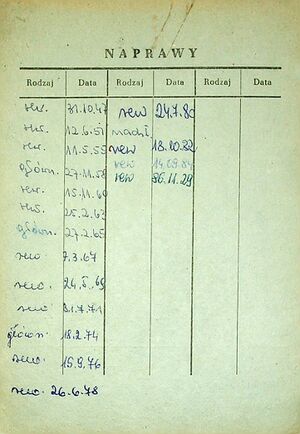 NAPRAWY
Rodzaj Data Rodzaj Data Rodzaj Data
rew. 31.10.47
rew. 12.6.51
rew. 11.5.55
główn. 27.11.58
rew. 15.11.60
rew. 25.2.63
główn. 27.2.65
rew. 7.3.67
rew. 24.5.69
rew. 31.7.71
główn. 18.2.74
rew. 15.9.76
rew. 26.6.78
rew 24.7.80
nadzl.
rew 18.10.82
rew 14.09.84
rew 86.11.29